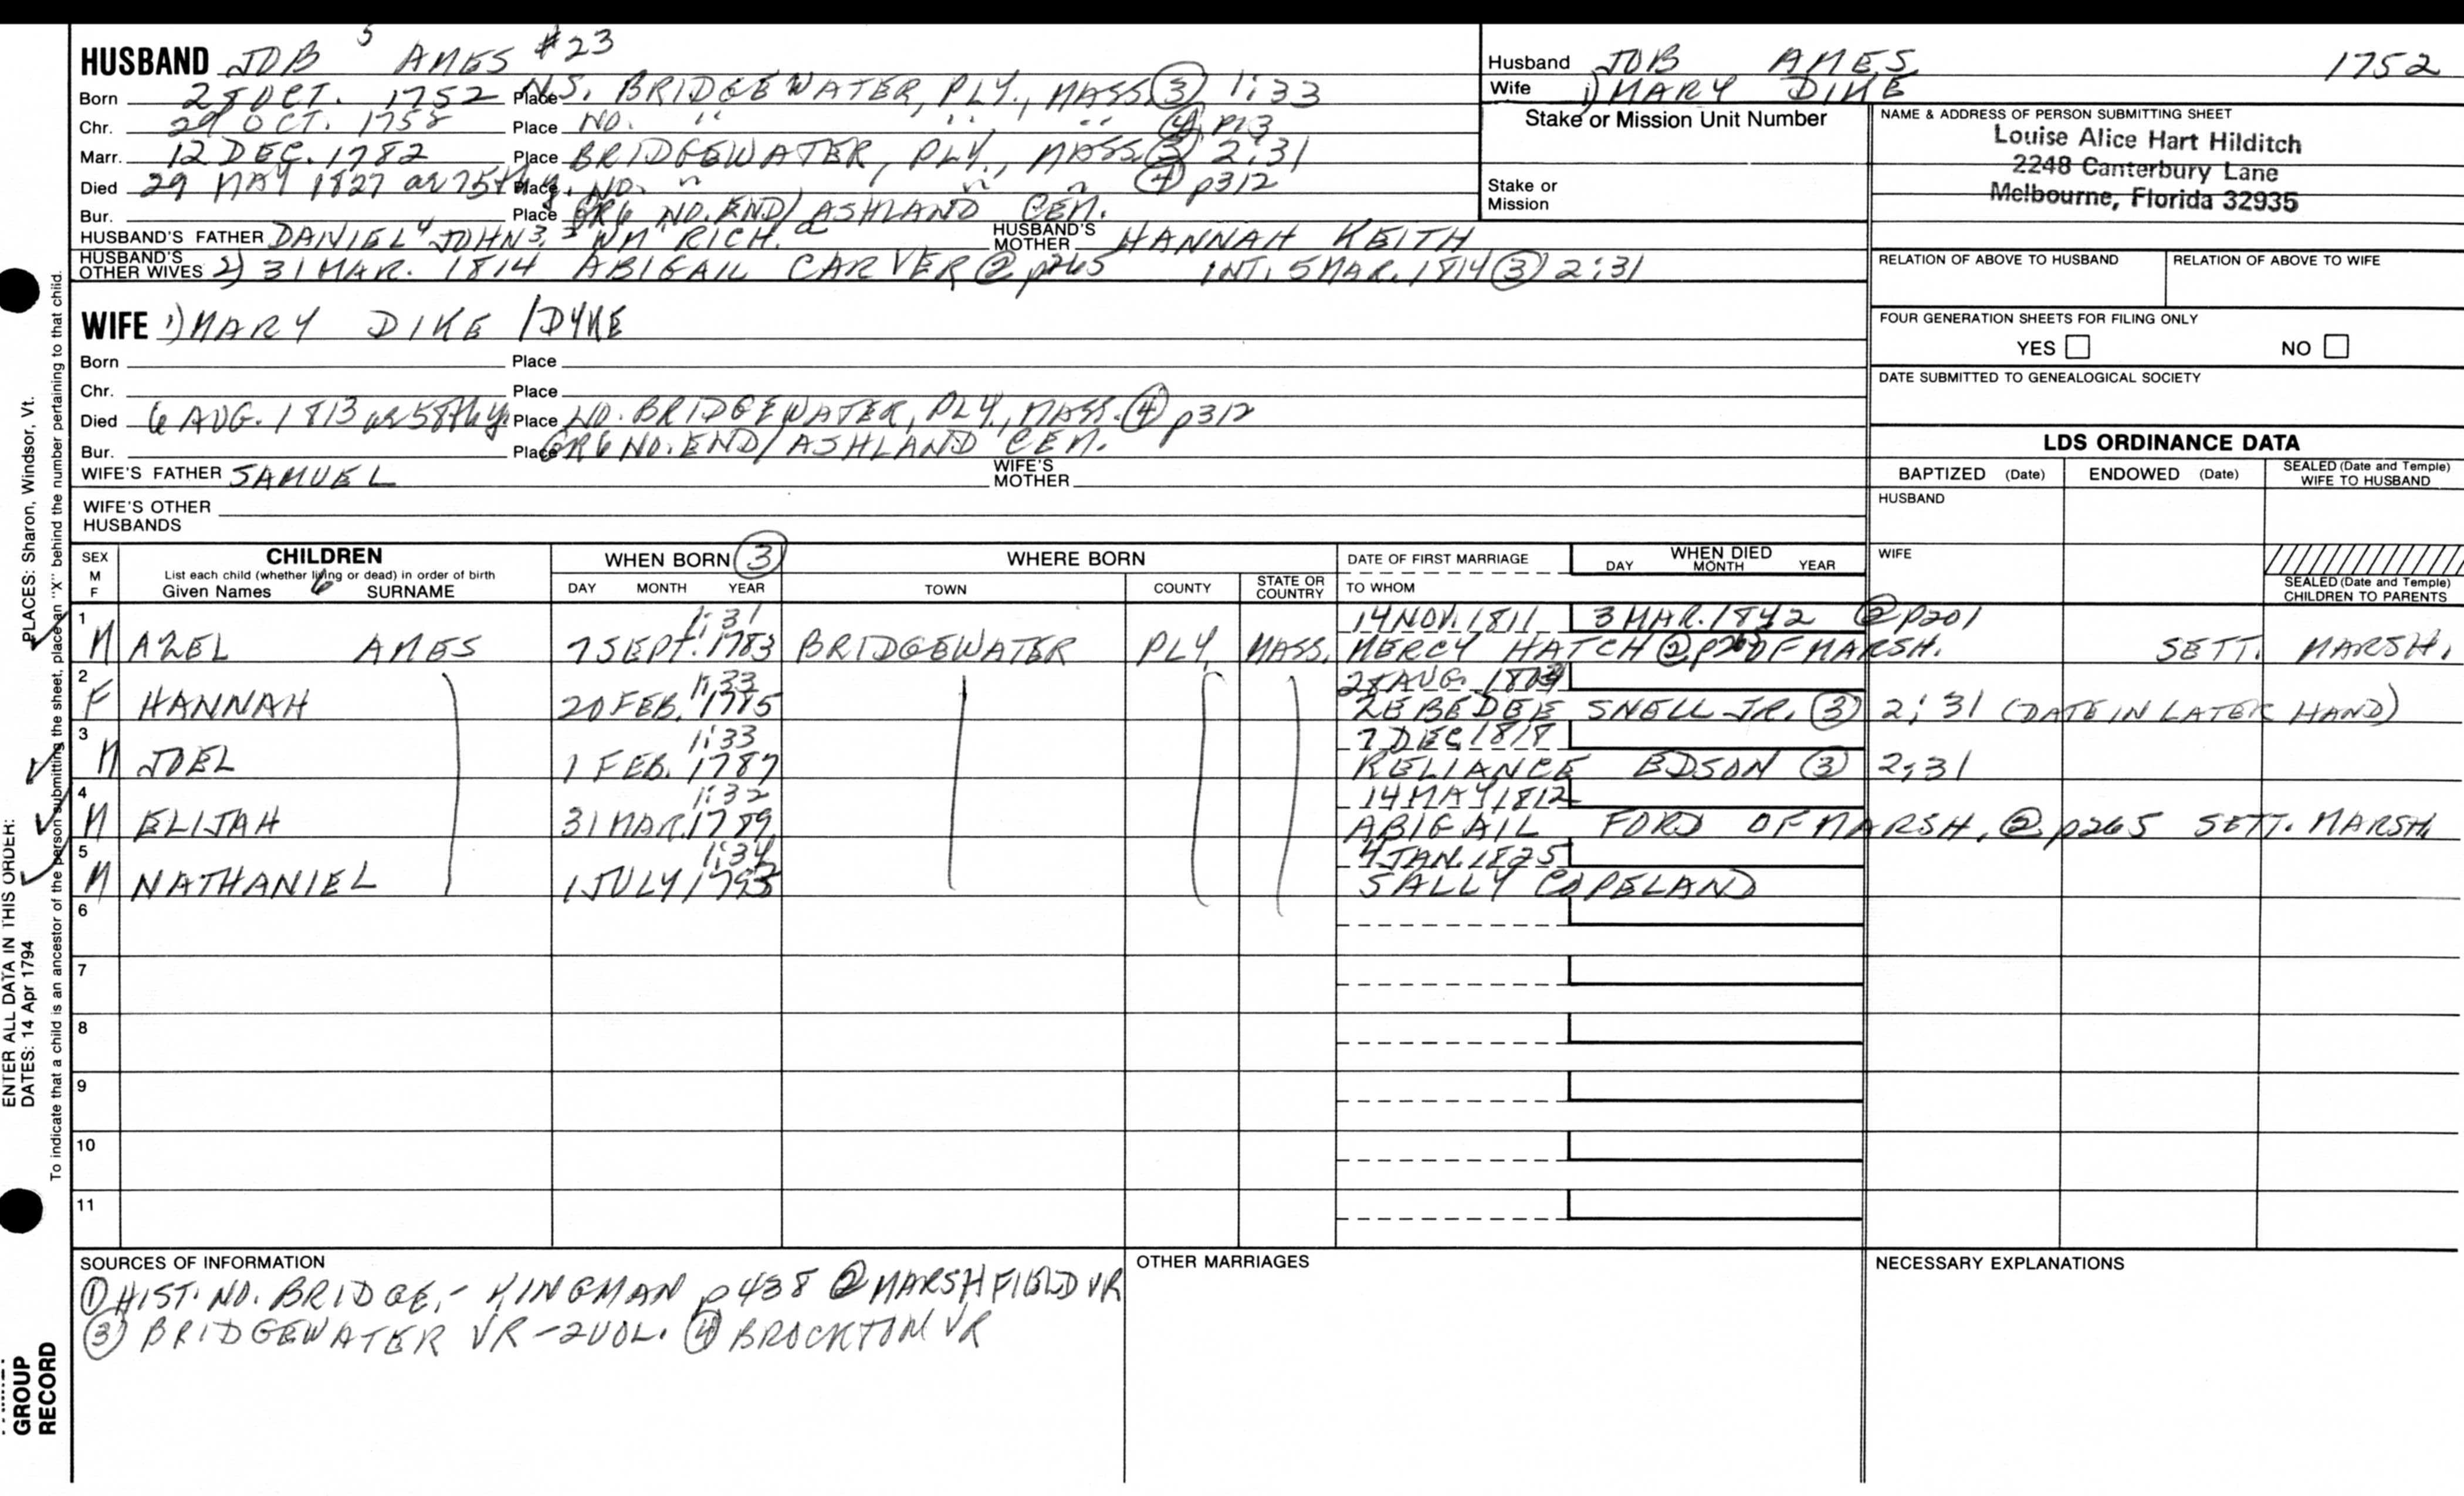 HUSBAND JOB 5 AMES #23
Born 28 OCT. 1752 Place N.S. BRIDGEWATER, PLY., MASS. ③ 1:33
Chr. 29 OCT. 1758 Place NO. " " " ④ p13
Marr. 12 DEC. 1782 Place BRIDGEWATER, PLY., MASS. ③ 2:31
Died 29 MAY 1827 ae 75th y. Place NO. " " " ④ p312
Bur. Place GR6 NO. END/ASHLAND CEM.
HUSBAND'S FATHER DANIEL 4 JOHN 3, WM RICH. HUSBAND'S MOTHER HANNAH KEITH
HUSBAND'S OTHER WIVES 2) 31 MAR. 1814 ABIGAIL CARVER ② p265 INT. 5 MAR. 1814 ③ 2:31
Husband JOB AMES 1752
Wife 1) MARY DIKE
Stake or Mission Unit Number
Stake or Mission
NAME & ADDRESS OF PERSON SUBMITTING SHEET
Louise Alice Hart Hilditch
2248 Canterbury Lane
Melbourne, Florida 32935
RELATION OF ABOVE TO HUSBAND RELATION OF ABOVE TO WIFE
FOUR GENERATION SHEETS FOR FILING ONLY
YES NO
DATE SUBMITTED TO GENEALOGICAL SOCIETY
WIFE 1) MARY DIKE /DYKE
Born Place
Chr. Place
Died 6 AUG. 1813 ae 58th y. Place NO. BRIDGEWATER, PLY., MASS. ④ p312
Bur. Place GR6 NO. END/ASHLAND CEM.
WIFE'S FATHER SAMUEL WIFE'S MOTHER
WIFE'S OTHER HUSBANDS
LDS ORDINANCE DATA
BAPTIZED (Date) ENDOWED (Date) SEALED (Date and Temple) WIFE TO HUSBAND
HUSBAND
WIFE
SEALED (Date and Temple) CHILDREN TO PARENTS
SEX M F
CHILDREN
List each child (whether living or dead) in order of birth
Given Names SURNAME
WHEN BORN ③
DAY MONTH YEAR
WHERE BORN
TOWN COUNTY STATE OR COUNTRY
DATE OF FIRST MARRIAGE
TO WHOM
WHEN DIED
DAY MONTH YEAR
1 1:31 14 NOV. 1811 3 MAR. 1842 ② p201
M AZEL AMES 7 SEPT. 1783 BRIDGEWATER PLY. MASS. MERCY HATCH ② p265 OF MARSH. SETT. MARSH.
2 1:33 28 AUG. 1804
F HANNAH 20 FEB. 1785 ZEBEDEE SNELL JR. ③ 2:31 (DATE IN LATER HAND)
3 1:33 7 DEC. 1818
M JOEL 1 FEB. 1787 RELIANCE EDSON ③ 2:31
4 1:32 14 MAY 1812
M ELIJAH 31 MAR. 1789 ABIGAIL FORD OF MARSH. ② p265 SETT. MARSH.
5 1:34 4 JAN. 1825
M NATHANIEL 1 JULY 1793 SALLY COPELAND
6
7
8
9
10
11
SOURCES OF INFORMATION
① HIST. NO. BRIDGE. - KINGMAN p438 ② MARSHFIELD VR
③ BRIDGEWATER VR - 2 VOL. ④ BROCKTON VR
OTHER MARRIAGES
NECESSARY EXPLANATIONS
PLACES: Sharon, Windsor, Vt.
ENTER ALL DATA IN THIS ORDER:
DATES: 14 Apr 1794
To indicate that a child is an ancestor of the person submitting the sheet, place an "X" behind the number pertaining to that child.
GROUP
RECORD